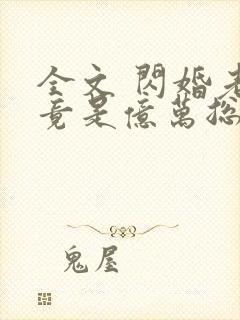 全文 閃婚老
竟是億萬總
鬼屋